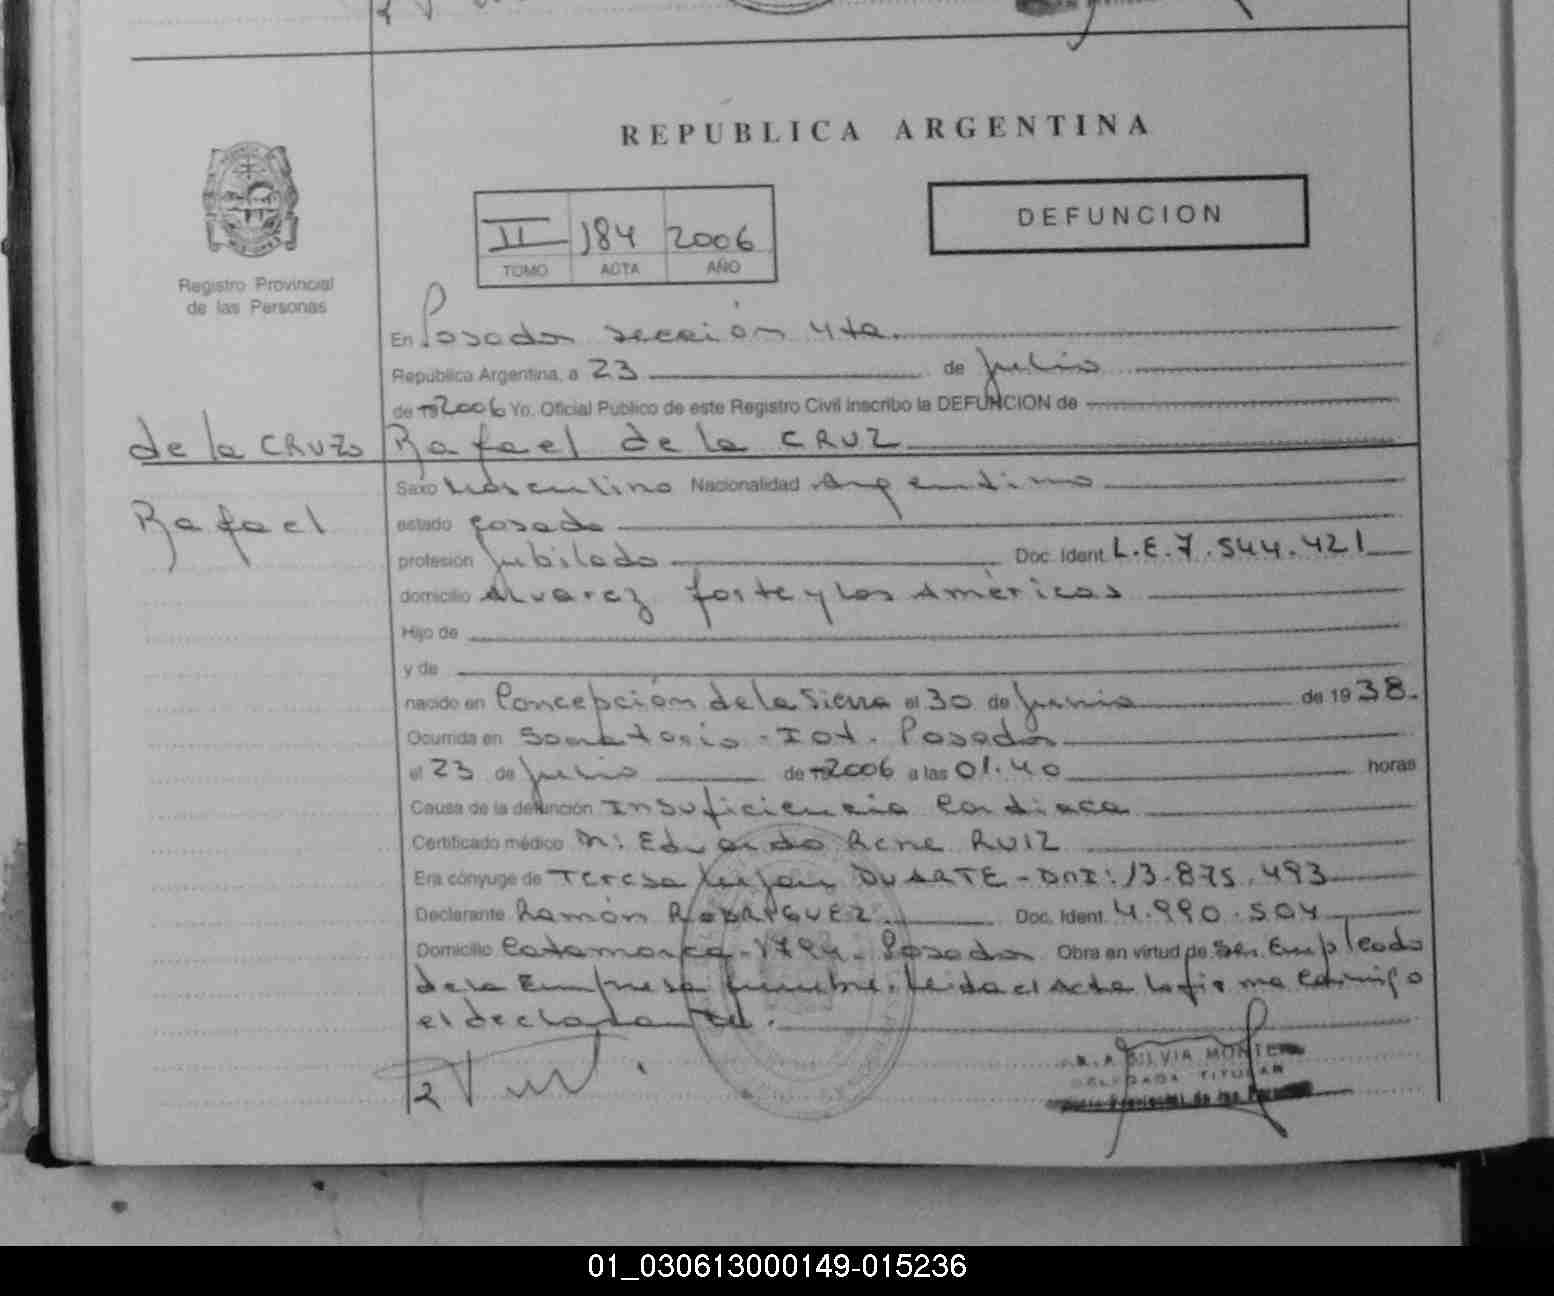 REPUBLICA ARGENTINA
II 184 2006
TOMO ACTA AÑO
DEFUNCION
Registro Provincial
de las Personas
En Posadas sección 4ta.
República Argentina, a 23 de Julio
de 2006 Yo. Oficial Público de este Registro Civil inscribo la DEFUNCION de
de la CRUZ Rafael de la CRUZ
Sexo Masculino Nacionalidad Argentina
Rafael
estado Casado
profesión Jubilado Doc. Ident. L.E.7.544.421
domicilio Alvarez forte y Las Américas
Hijo de
y de
nacido en Concepción de la Sierra el 30 de Junio de 1938.
Ocurrida en Sanatorio - Iot. Posadas
el 23 de Julio de 2006 a las 01.40 horas
Causa de la defunción Insuficiencia Cardiaca
Certificado médico Dr: Eduardo Rene RUIZ
Era cónyuge de Teresa Lujan DUARTE - DNI: 13.875.493
Declarante Ramón RODRIGUEZ Doc. Ident. 4.990.504
Domicilio Catamarca - 1794 - Posadas Obra en virtud de Ser Empleado
de la Empresa funebre. Leida el Acta la firma Conmigo
el declarante.
SILVIA MONTE
TITULAR
Provincial de las
01_030613000149-015236